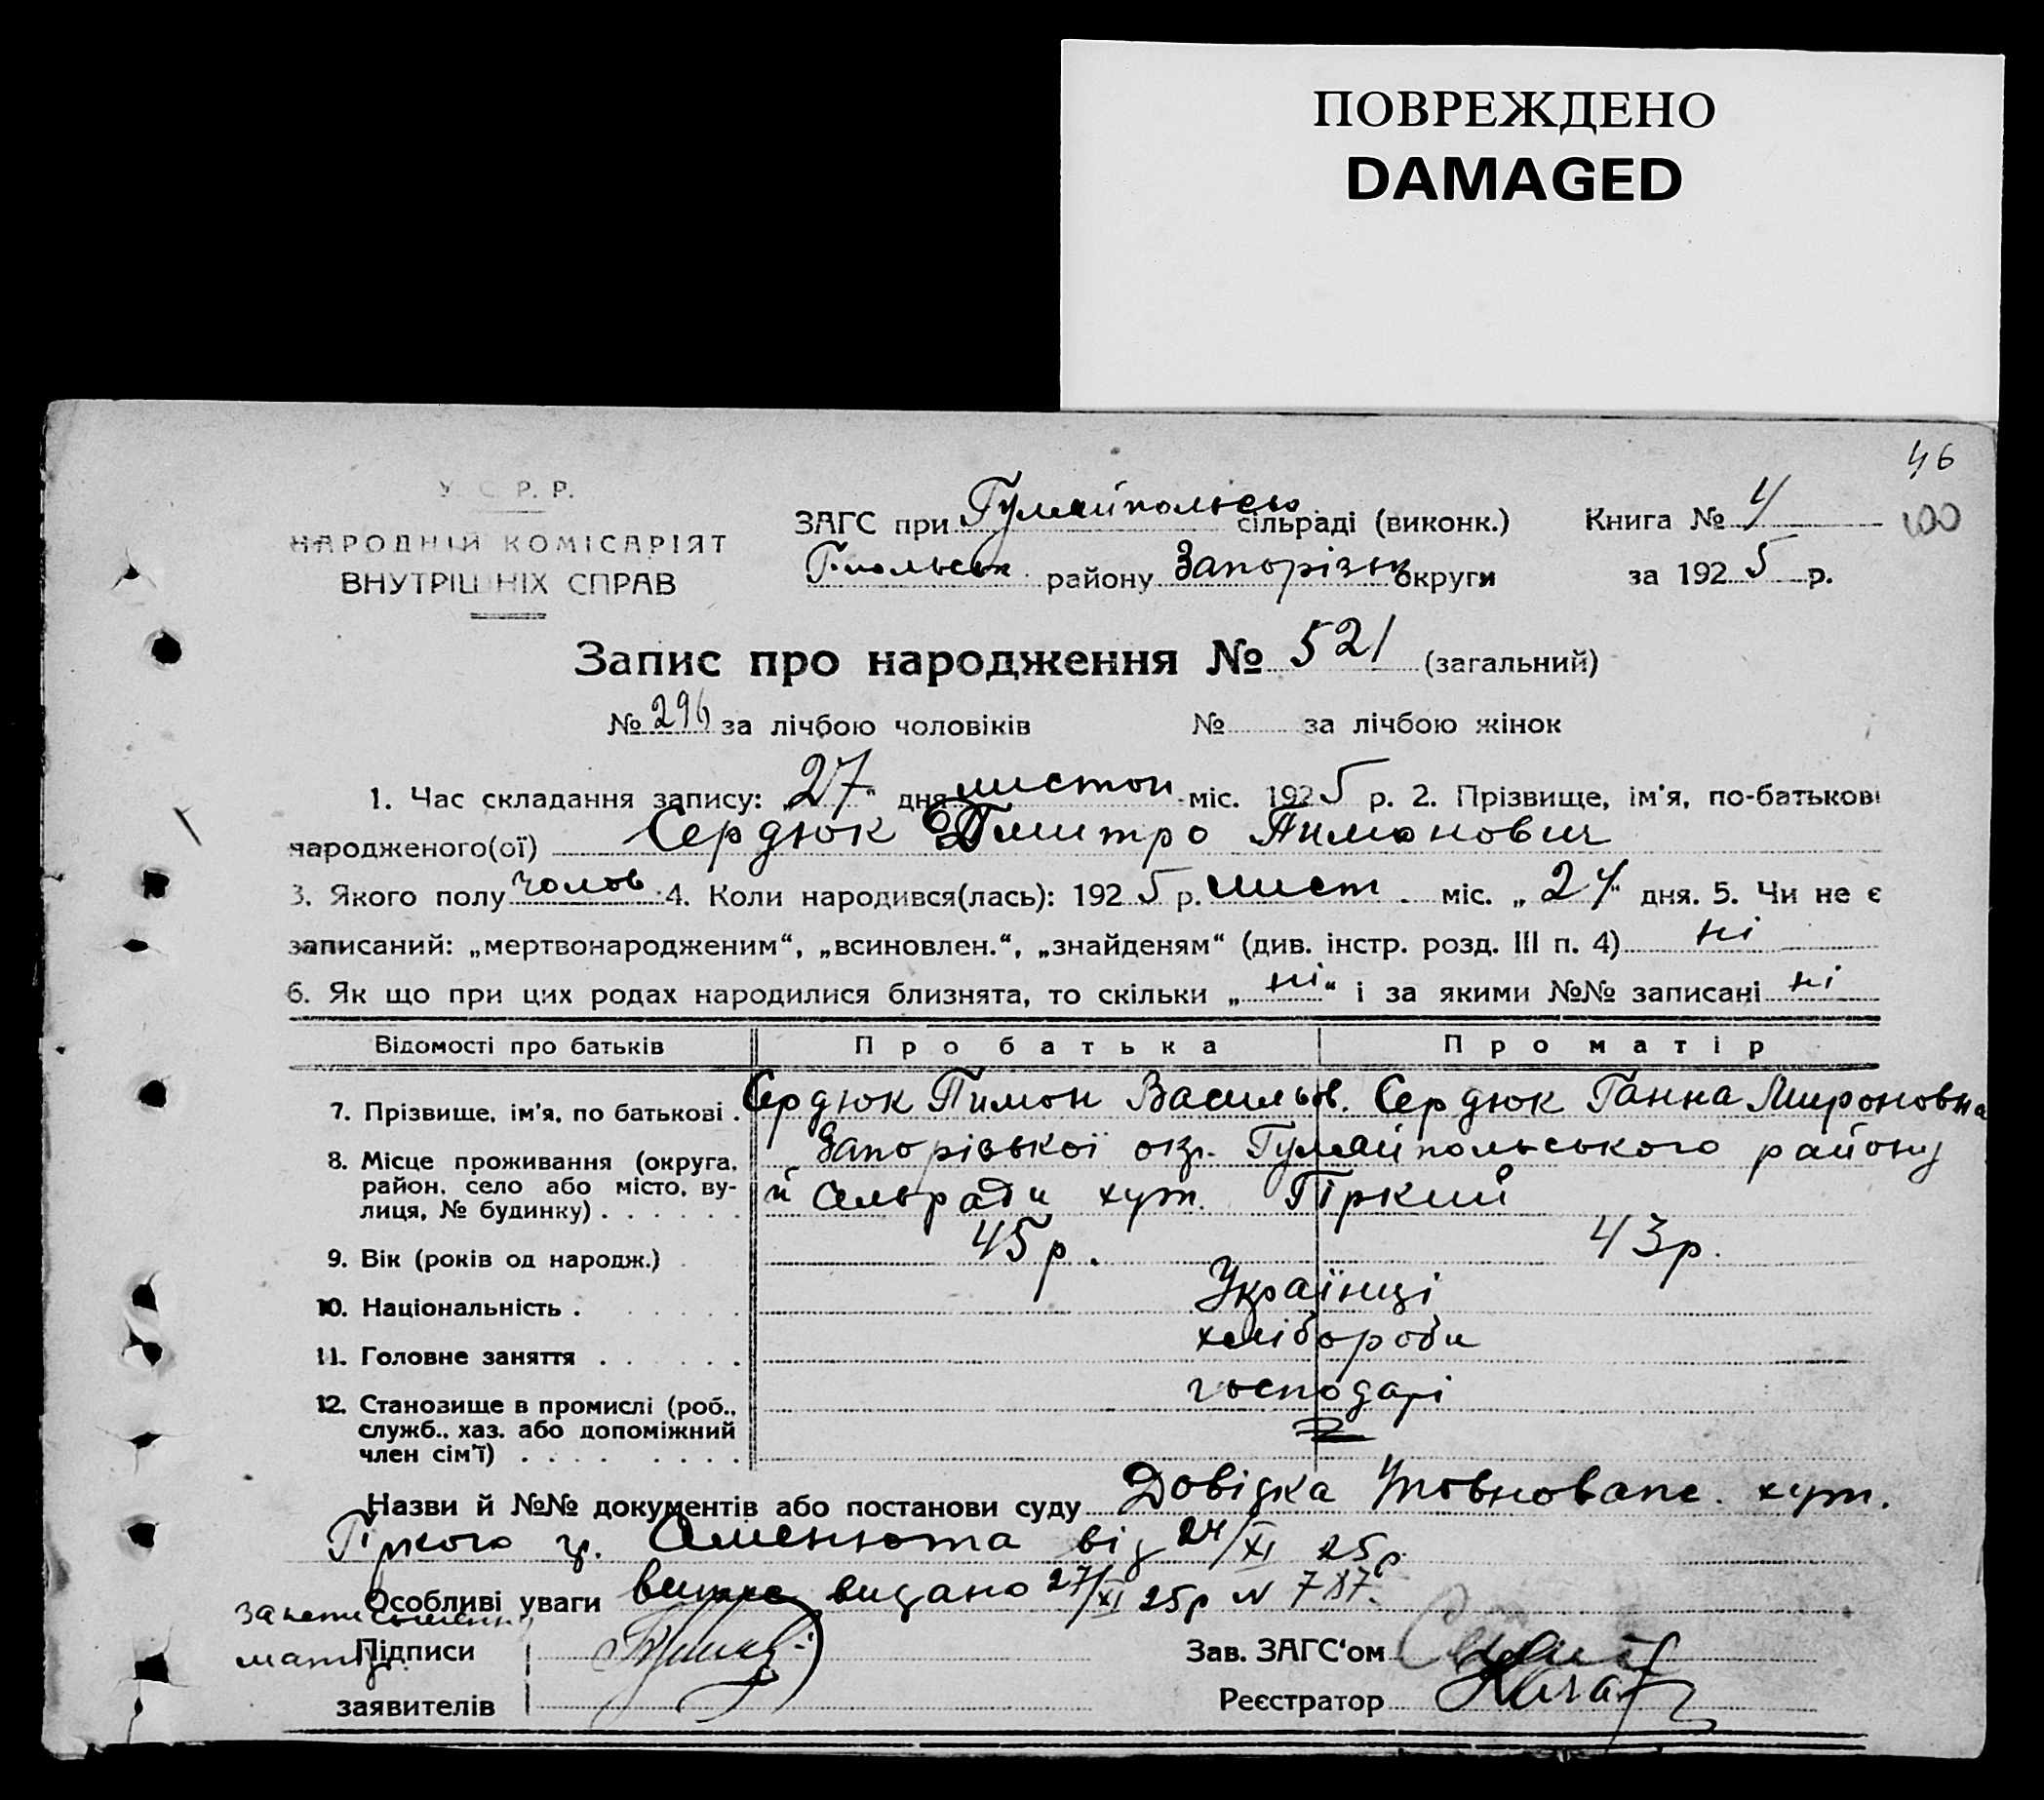 ПОВРЕЖДЕНО
DAMAGED
46
100
У. С. Р. Р.
НАРОДНІЙ КОМІСАРІЯТ
ВНУТРІШНІХ СПРАВ
ЗАГС при Гуляйпольсью сільраді (виконк.) Книга № 4
Г-польськ району Запорізьк округи за 1925 р.
Запис про народження № 521 (загальний)
№ 296 за лічбою чоловіків № за лічбою жінок
1. Час складання запису: „27“ дня листоп міс. 1925 р. 2. Прізвище, ім'я, по-батькові
народженого(ої) Сердюк Дмитро Пимонович
3. Якого полу чолов 4. Коли народився(лась): 1925 р. лист. міс. „24“ дня. 5. Чи не є
записаний: „мертвонародженим“, „всиновлен.“, „знайденям“ (див. інстр. розд. III п. 4) ні
6. Як що при цих родах народилися близнята, то скільки „ні“ і за якими №№ записані ні
Відомості про батьків Про батька Про матір
7. Прізвище, ім'я, по батькові. Сердюк Пимон Васильов. Сердюк Ганна Мироновна
8. Місце проживання (округа, район, село або місто, вулиця, № будинку) Запорізької окр. Гуляйпольського району
й сельради хут. Гіркий
9. Вік (років од народж.) 45 р. 43 р.
10. Національність. Українці
11. Головне заняття хлібороби
12. Становище в промислі (роб., служб., хаз. або допоміжний член сім'ї) господарі
Назви й №№ документів або постанови суду Довідка Уповноваже. хут.
Гіркого гр. від 24/XI 25р
Особливі уваги видано 27/XI 25р N 787.
Підписи
заявителів
матір
Зав. ЗАГС'ом
Реєстратор